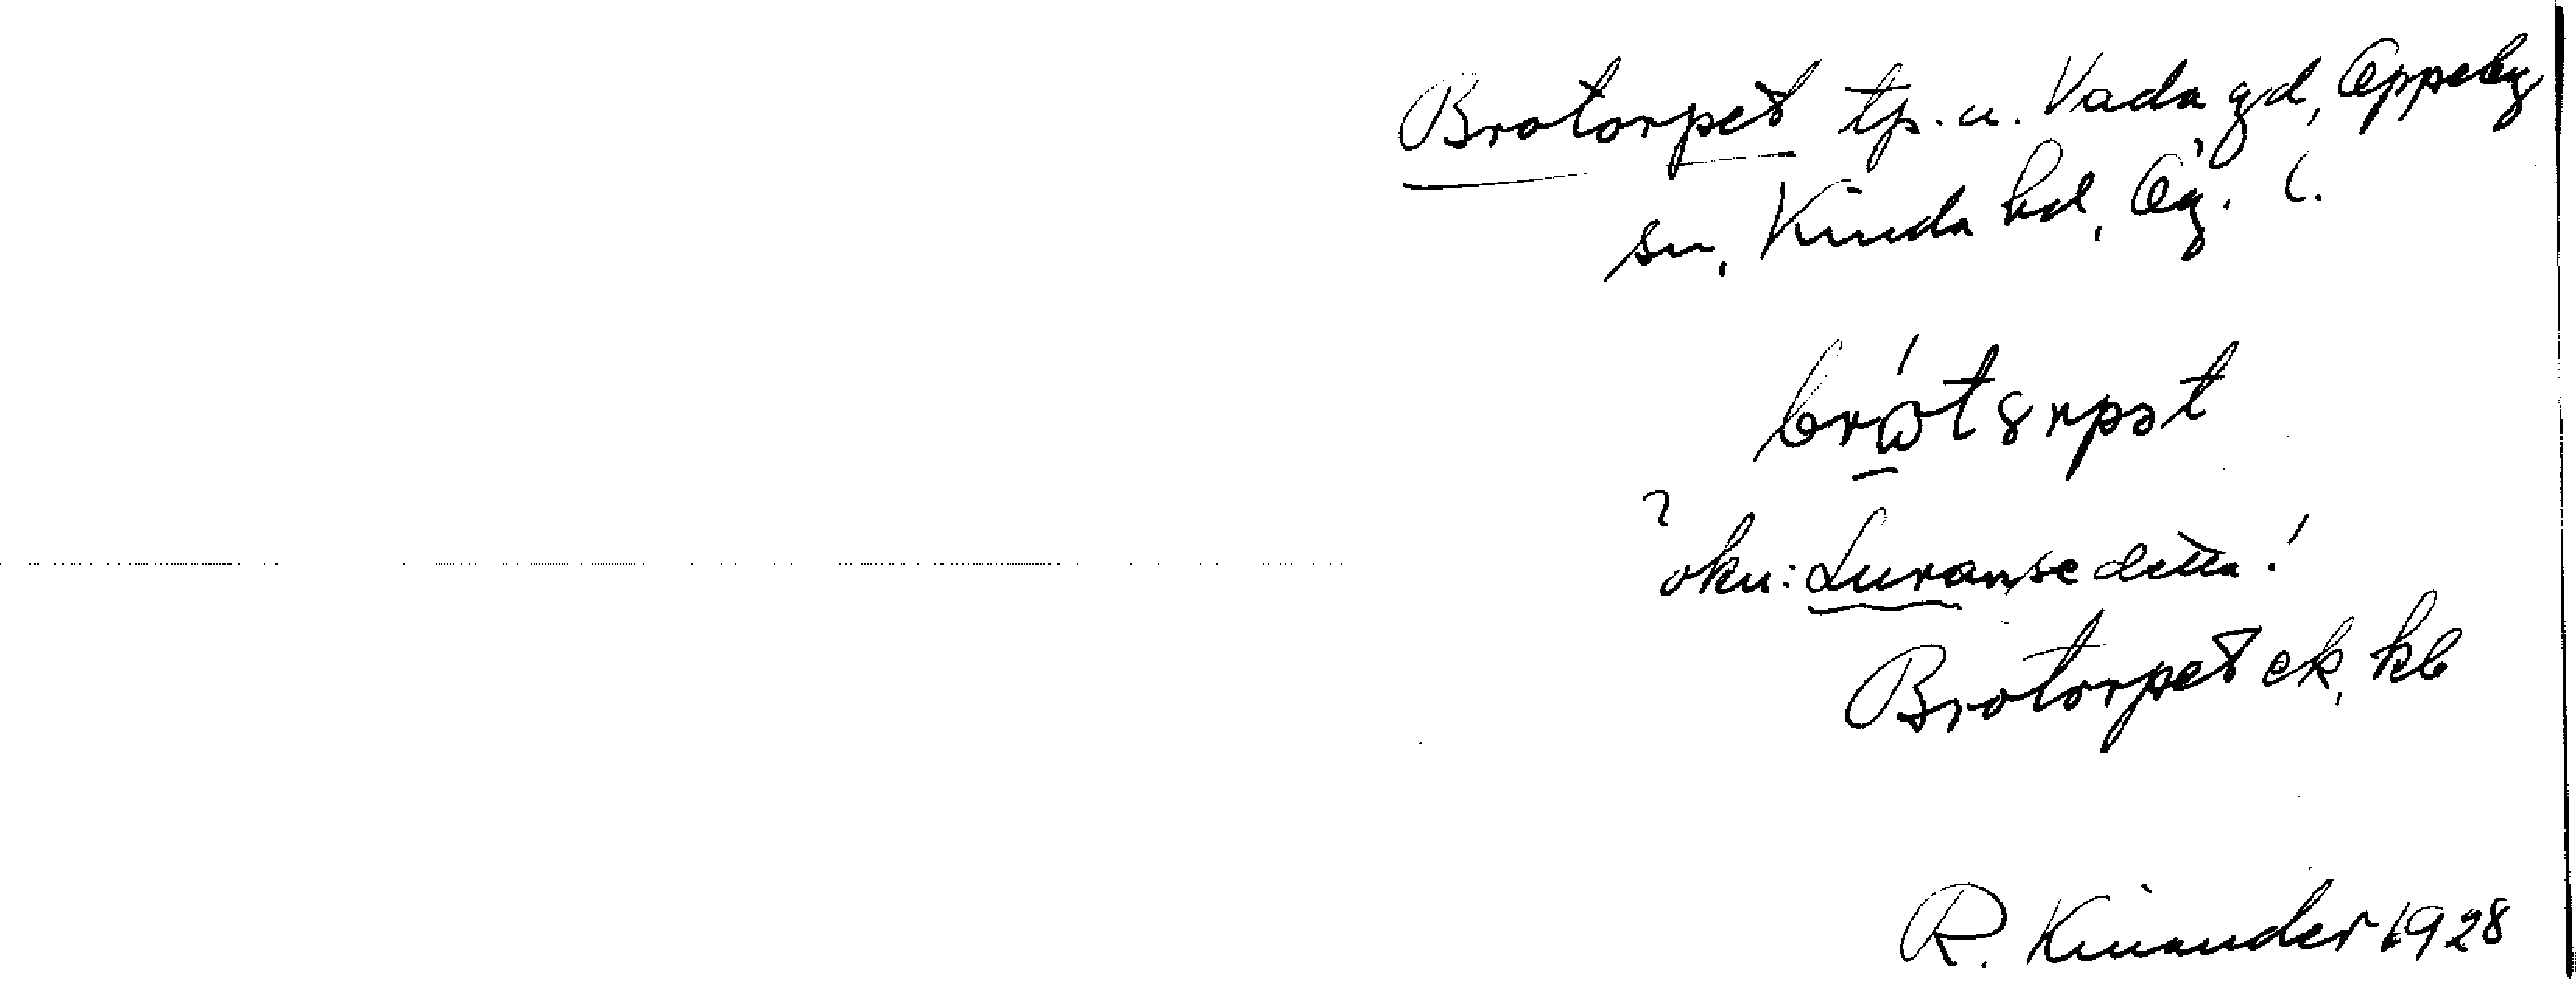 Brotorpet tp. u. Vada gd, Oppeby
sn, Kinda hd, Ög. l.
brώ̲t8rpət
?
oku: Luranse detta!
Brotorpet ek, kb
R. Kinander 1928